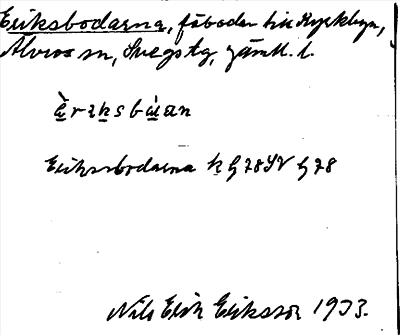 Eriksbodarna, fäbodar till Kyrkbyn,
Älvros sn, Svegs tg, Jämtl. l.
Eriksbodarna k G 28 SV G 28
Nils Erik Eriksson 1933.